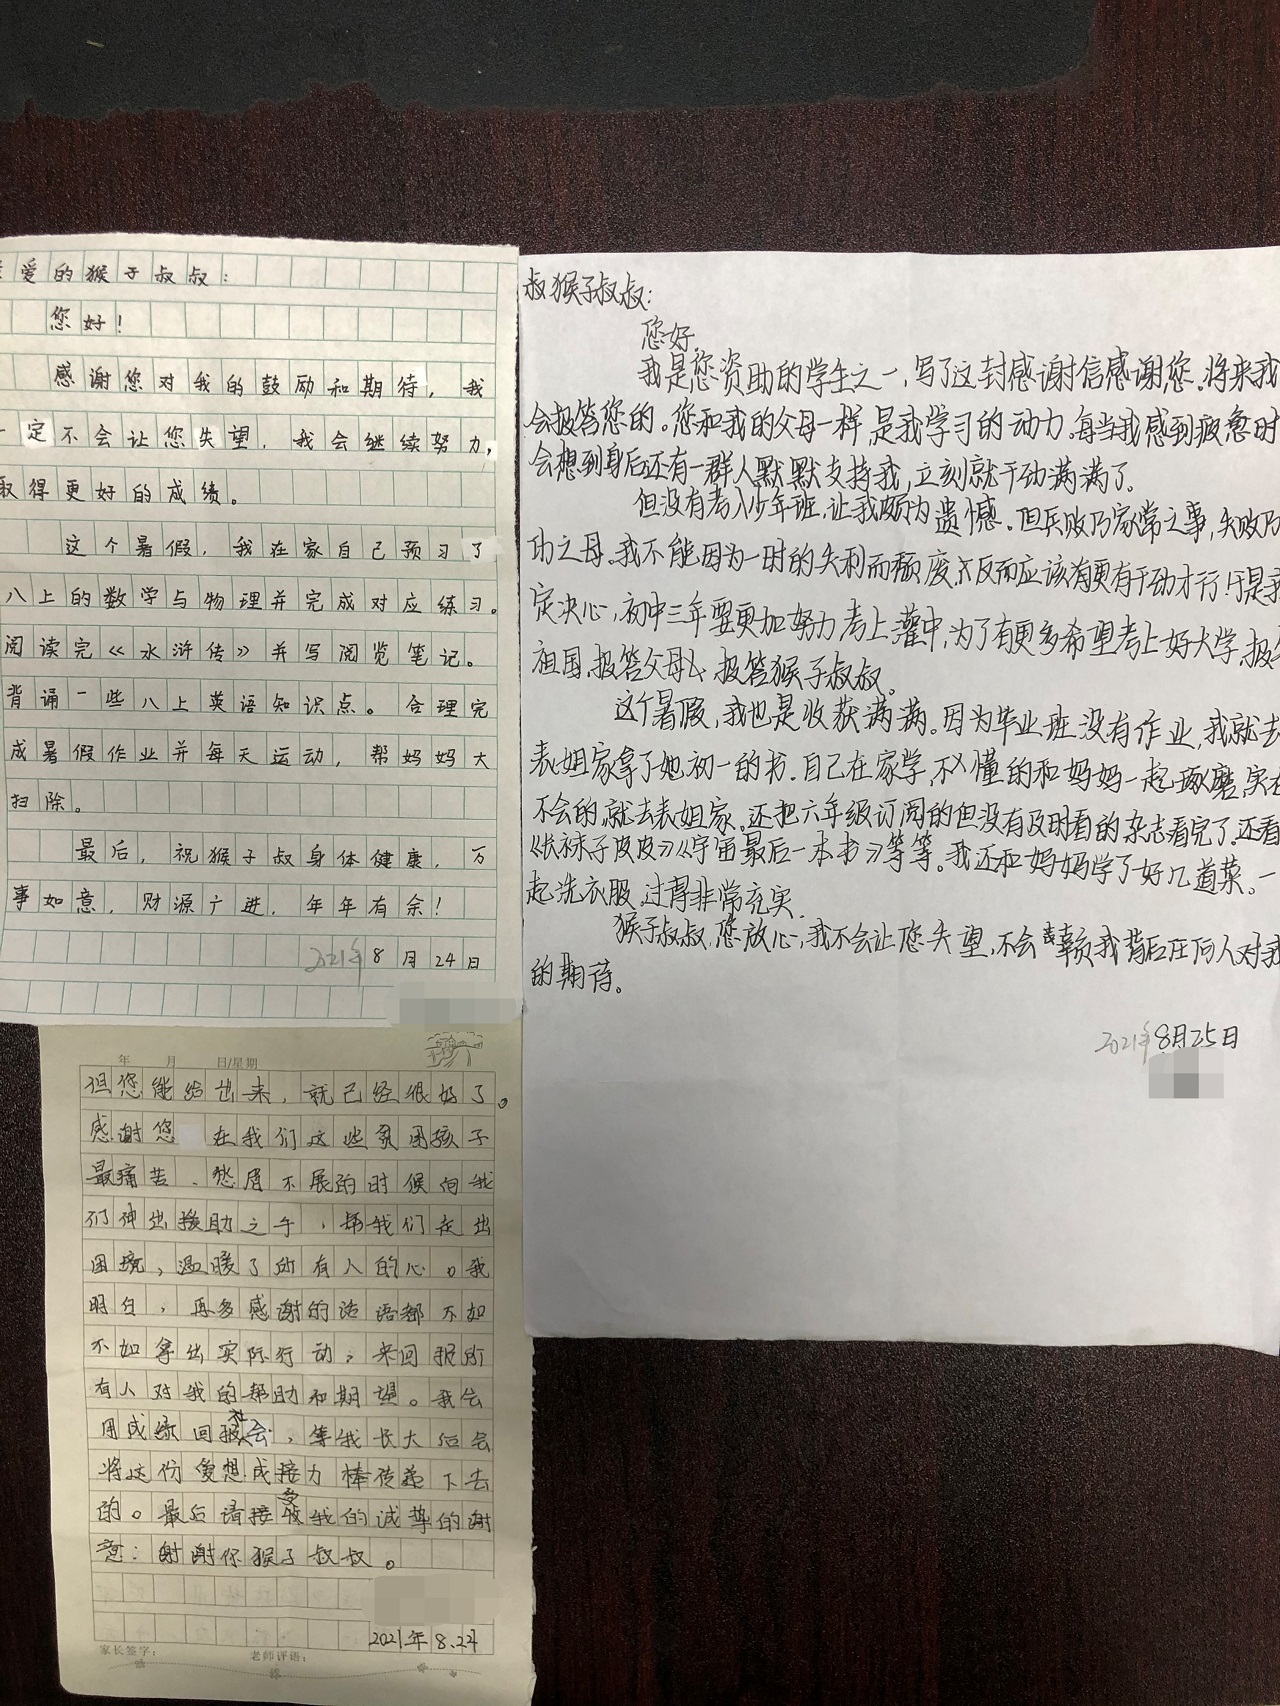 爱的猴子叔叔：
您好！
感谢您对我的鼓励和期待，我
一定不会让您失望，我会继续努力，
取得更好的成绩。
这个暑假，我在家自己预习了
八上的数学与物理并完成对应练习。
阅读完《水浒传》并写阅览笔记。
背诵一些八上英语知识点。合理完
成暑假作业并每天运动，帮妈妈大
扫除。
最后，祝猴子叔身体健康，万
事如意，财源广进，年年有余！
2021年8月24日
年 月 日/星期
但您能给出来，就已经很好了。
感谢您 在我们这些贫困孩子
最痛苦、愁眉不展的时候向我
们伸出援助之手，帮我们走出
困境，温暖了所有人的心。我
明白，再多感谢的话语都不如
不如拿出实际行动，来回报所
有人对我的帮助和期望。我会
用成绩回报社会，等我长大后会
将这份爱想成接力棒传递下去
的。最后请接受我的诚挚的谢
意：谢谢你猴子叔叔。
2021年8.24
家长签字： 老师评语：
叔猴子叔叔：
您好，
我是您资助的学生之一，写了这封感谢信感谢您，将来我
会报答您的。您和我的父母一样是我学习的动力。每当我感到疲惫时
会想到身后还有一群人默默支持我，立刻就干劲满满了。
但没有考入少年班，让我颇为遗憾。但兵败乃家常之事，失败乃
功之母。我不能因为一时的失利而颓废，反而应该有更有干劲才行！于是我
定决心，初中三年要更加努力考上灌中，为了有更多希望考上好大学，报答
祖国，报答父母，报答猴子叔叔。
这个暑假，我也是收获满满。因为毕业班没有作业，我就去
表姐家拿了她初一的书，自己在家学，不懂的和妈妈一起琢磨，实在
不会的，就去表姐家。还把六年级订阅的但没有及时看的杂志看完了，还看
《长袜子皮皮》《宇宙最后一本书》等等。我还和妈妈学了好几道菜。一
起洗衣服，过得非常充实。
猴子叔叔，您放心，我不会让您失望，不会辜负我背后任何人对我
的期待。
2021年8月25日